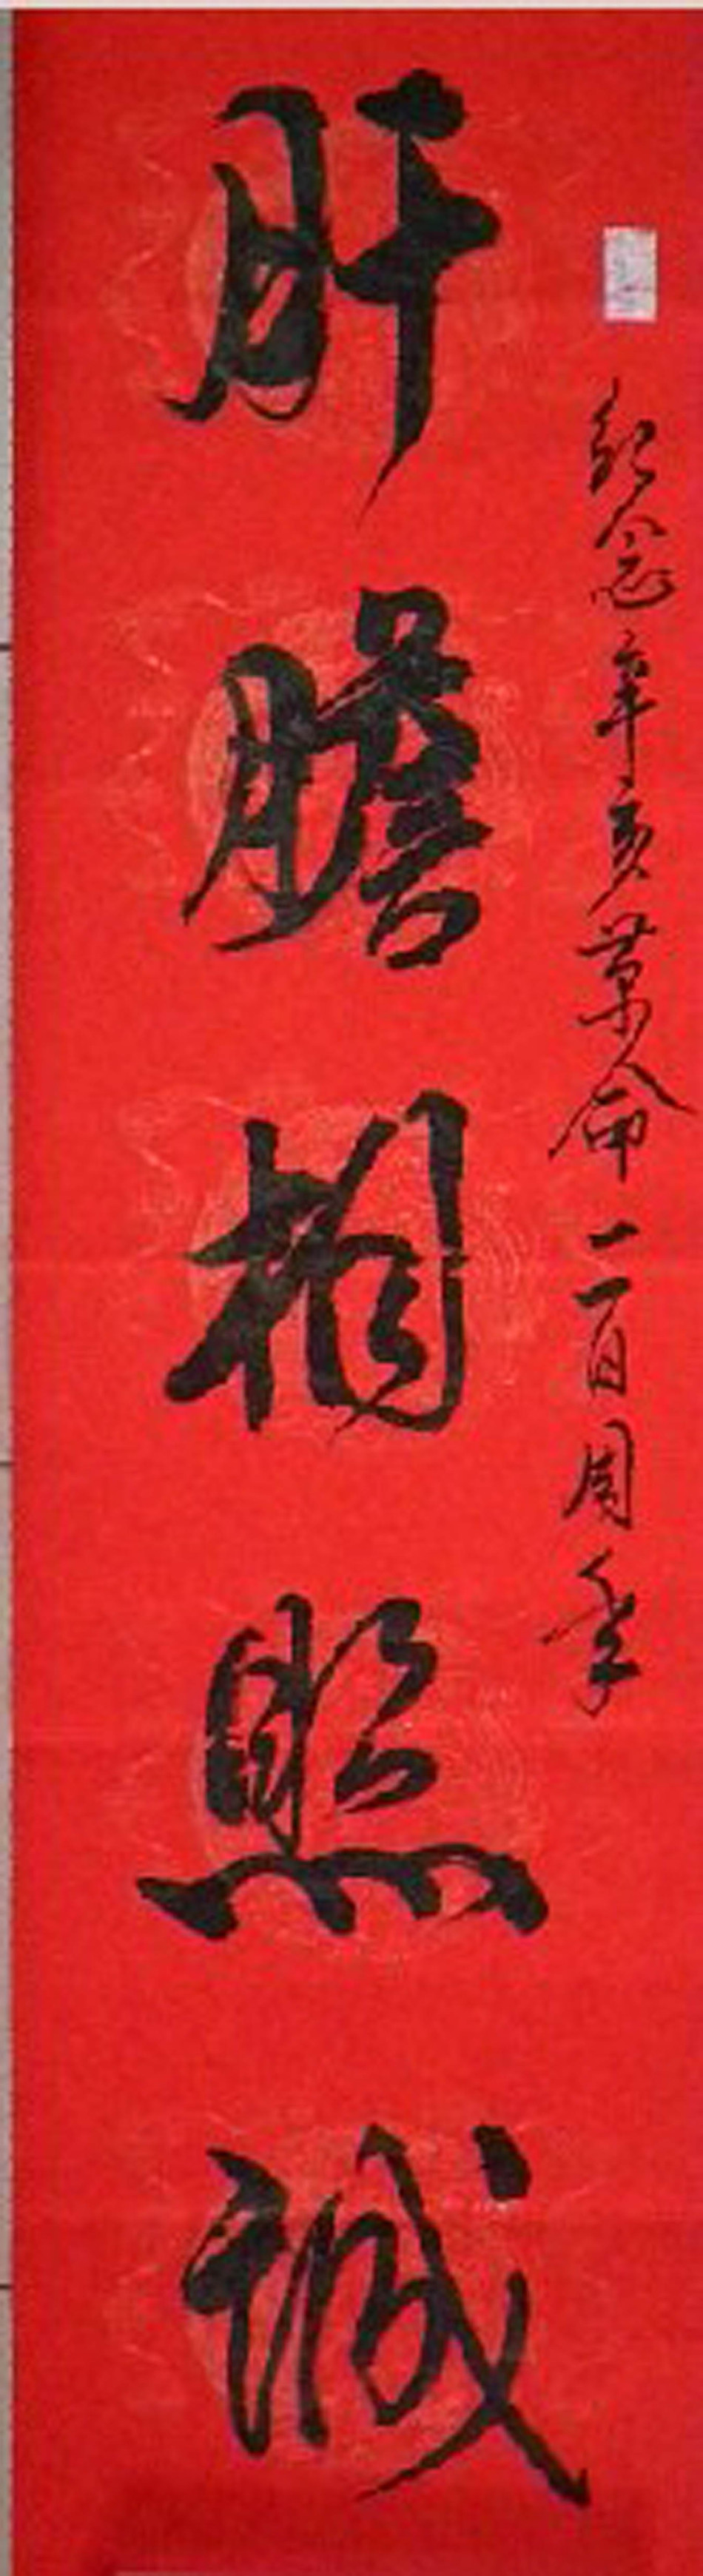 紀念辛亥革命一百周年
肝膽相照誠